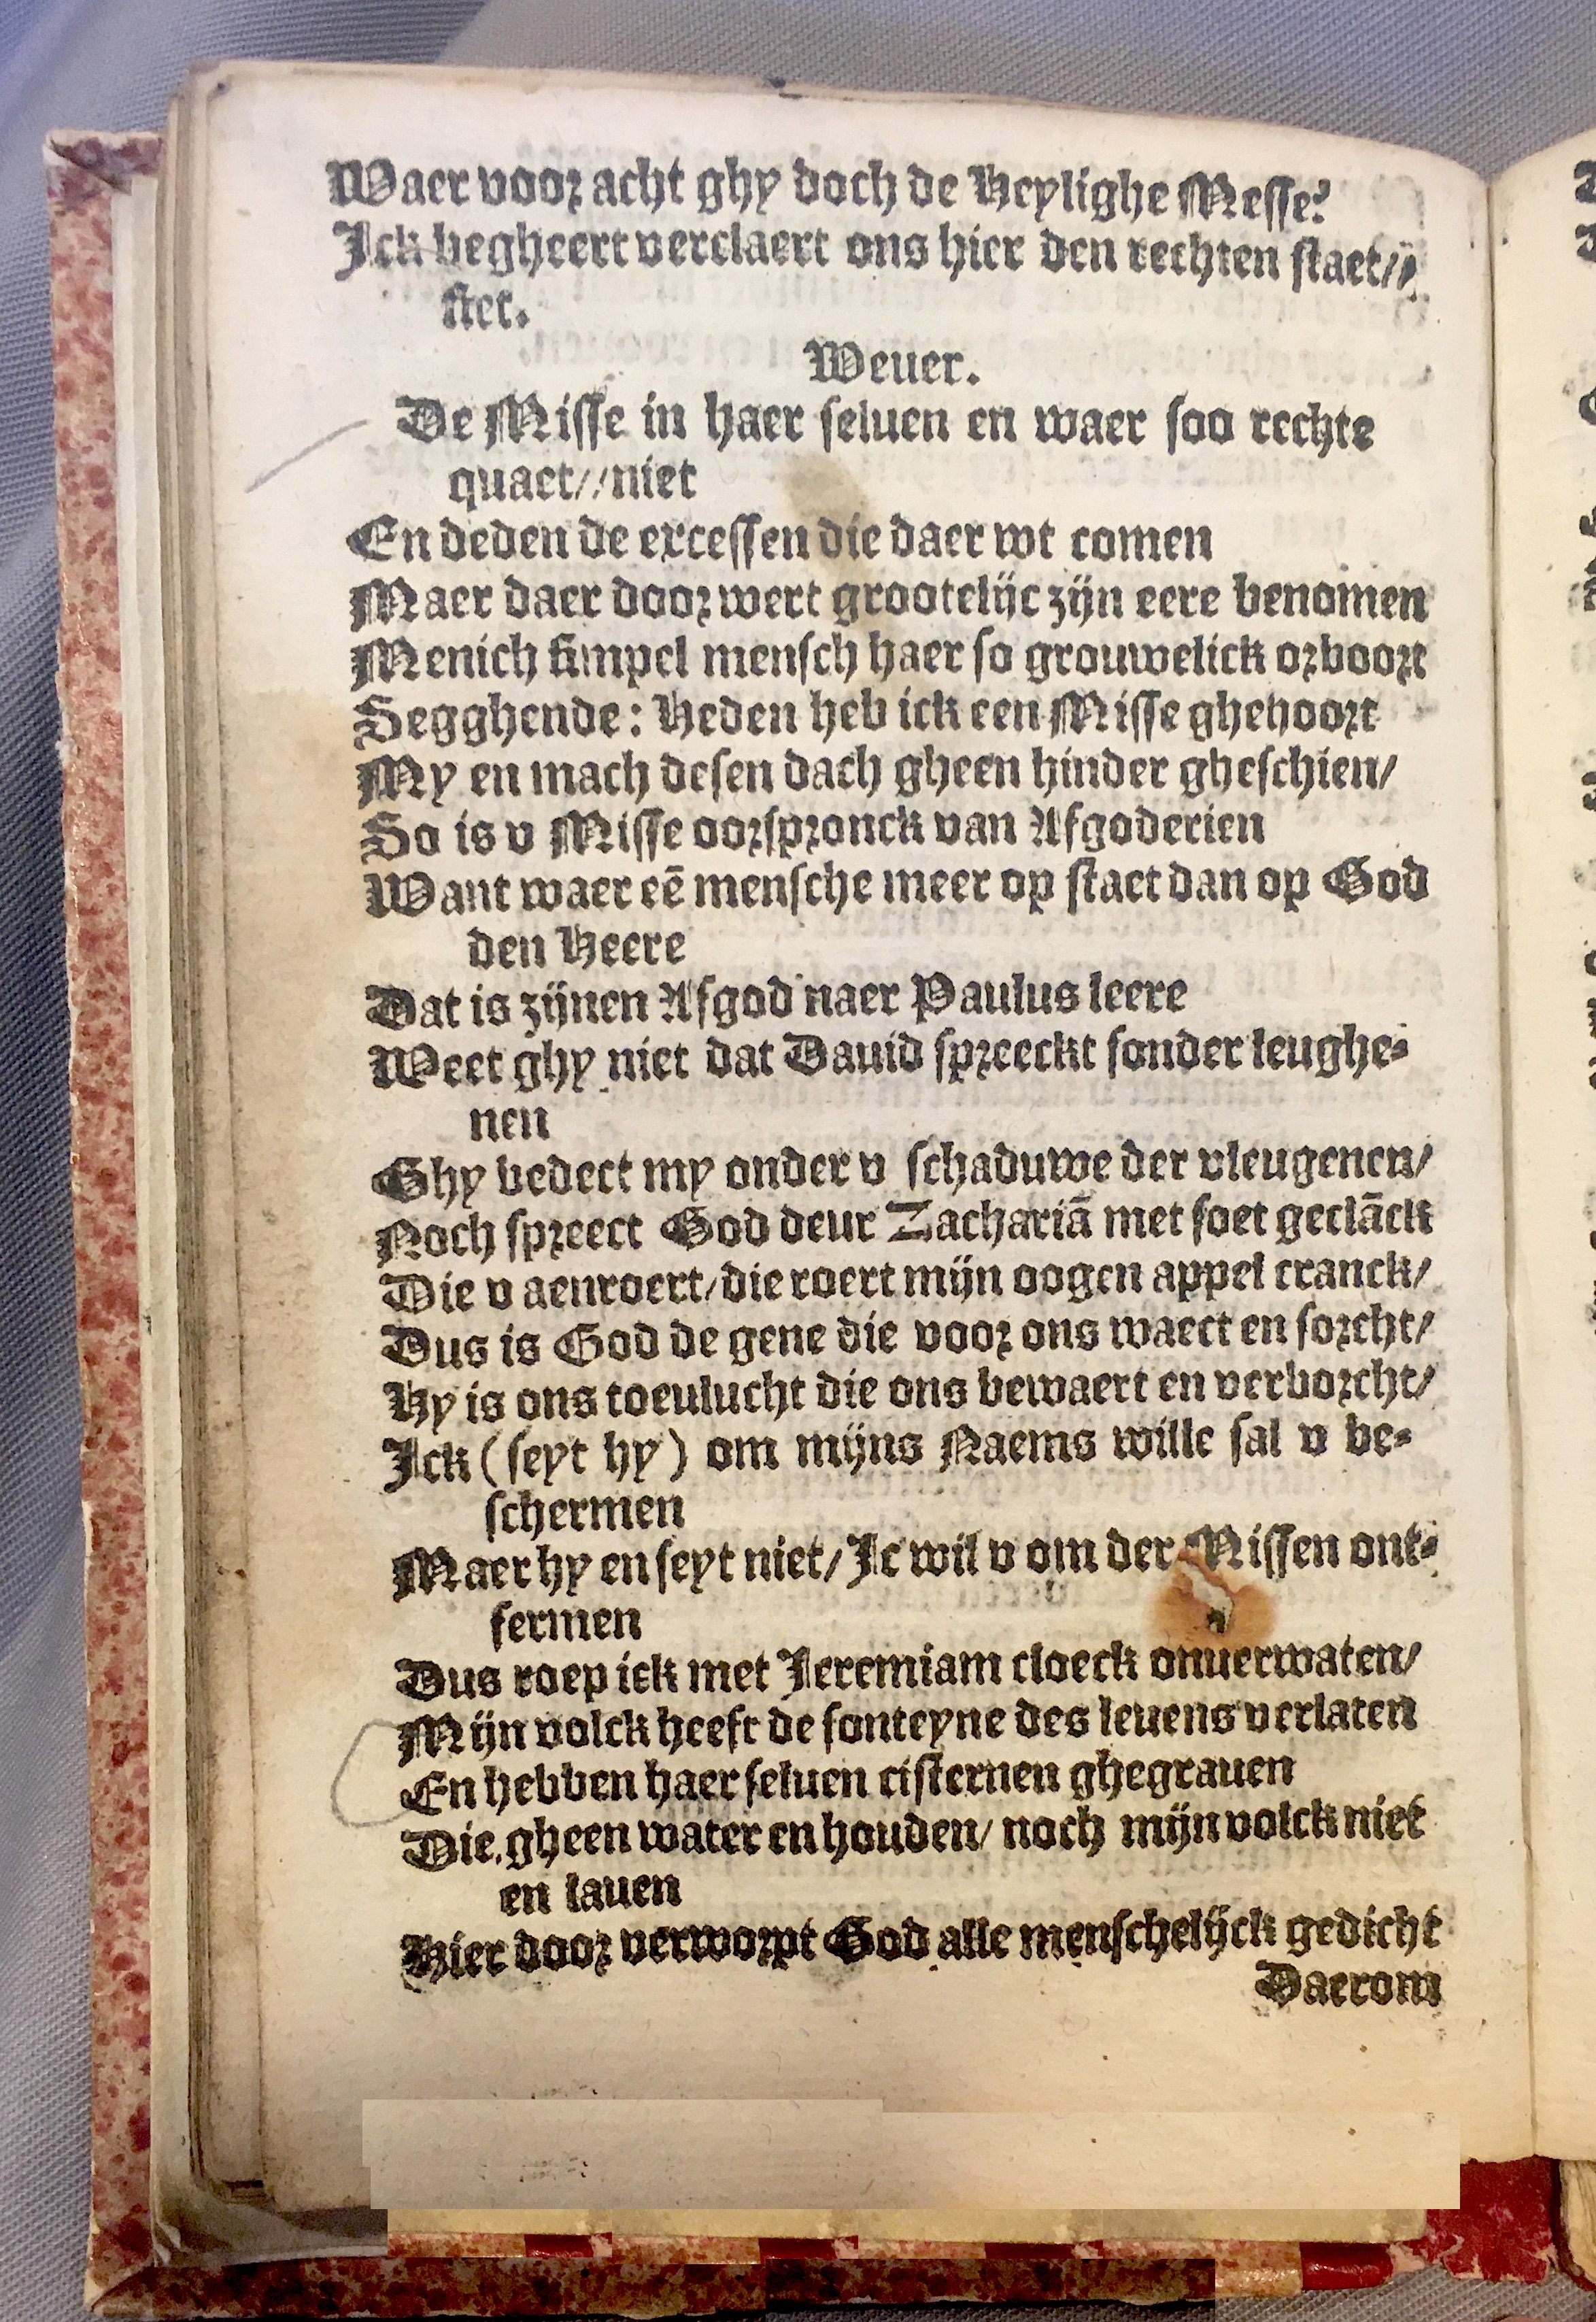 Waer voor acht ghy doch de Heylighe Messe?
Ick begheert verclaert ons hier den rechten staet//
siet.
Weuer.
De Misse in haer seluen en waer soo rechte
quaet//niet
En deden de excessen die daer wt comen
Maer daer door wert grootelijc zijn eere benomen
Menich simpel mensch haer so grouwelick orboort
Segghende: Heden heb ick een Misse ghehoort
My en mach desen dach gheen hinder gheschien/
So is v Misse oorspronck van Afgoderien
Want waer eē mensche meer op staet dan op God
den Heere
Dat is zijnen Afgod naer Paulus leere
Weet ghy niet dat Dauid spreeckt sonder leughe-
nen
Ghy bedect my onder v schaduwe der vleugenen/
Noch spreect God deur Zachariā met soet geclāck
Die v aenroert/die roert mijn oogen appel cranck/
Dus is God de gene die voor ons waect en sorcht/
Hy is ons toeulucht die ons bewaert en verborcht/
Ick (seyt hy) om mijns Naems wille sal v be-
schermen
Maer hy en seyt niet/Ic wil v om der Missen ont-
fermen
Dus roep ick met Jeremiam cloeck onuerwaten/
Mijn volck heeft de fonteyne des leuens verlaten
En hebben haer seluen cisternen ghegrauen
Die gheen water en houden/ noch mijn volck niet
en lauen
Hier door verworpt God alle menschelijck gedicht
Daerom